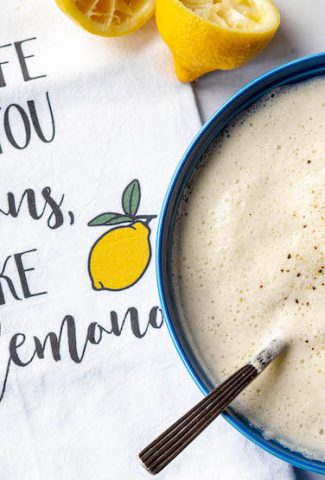 FE
YOU
ns,
KE
lemona